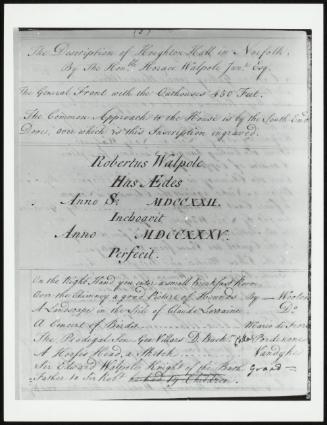 (5)
The Description of Houghton Hall in Norfolk.
By The Honble Horace Walpole Junr Esq.
The General Front with the Outhouses 450 Feet.
The Common Approach to the House is by the South End
Door, over which is this Inscription engraved.
Robertus Walpole
Has Ædes
Anno S: MDCCXXII.
Inchoavit
Anno MDCCXXXV.
Perfecit.
On the Right Hand you enter a small Breakfast Room.
Over the Chimney a good Picture of Hounds By — Wooton
A Landscape in the Stile of Claude Lorraine Do
A Concert of Birds
The Prodigal Son Geo Villars D. Buck Pordenone
A Horses Head, a Sketch Vandyke
Sir Edward Walpole Knight of the Bath Grand =
= Father to Sir Robt